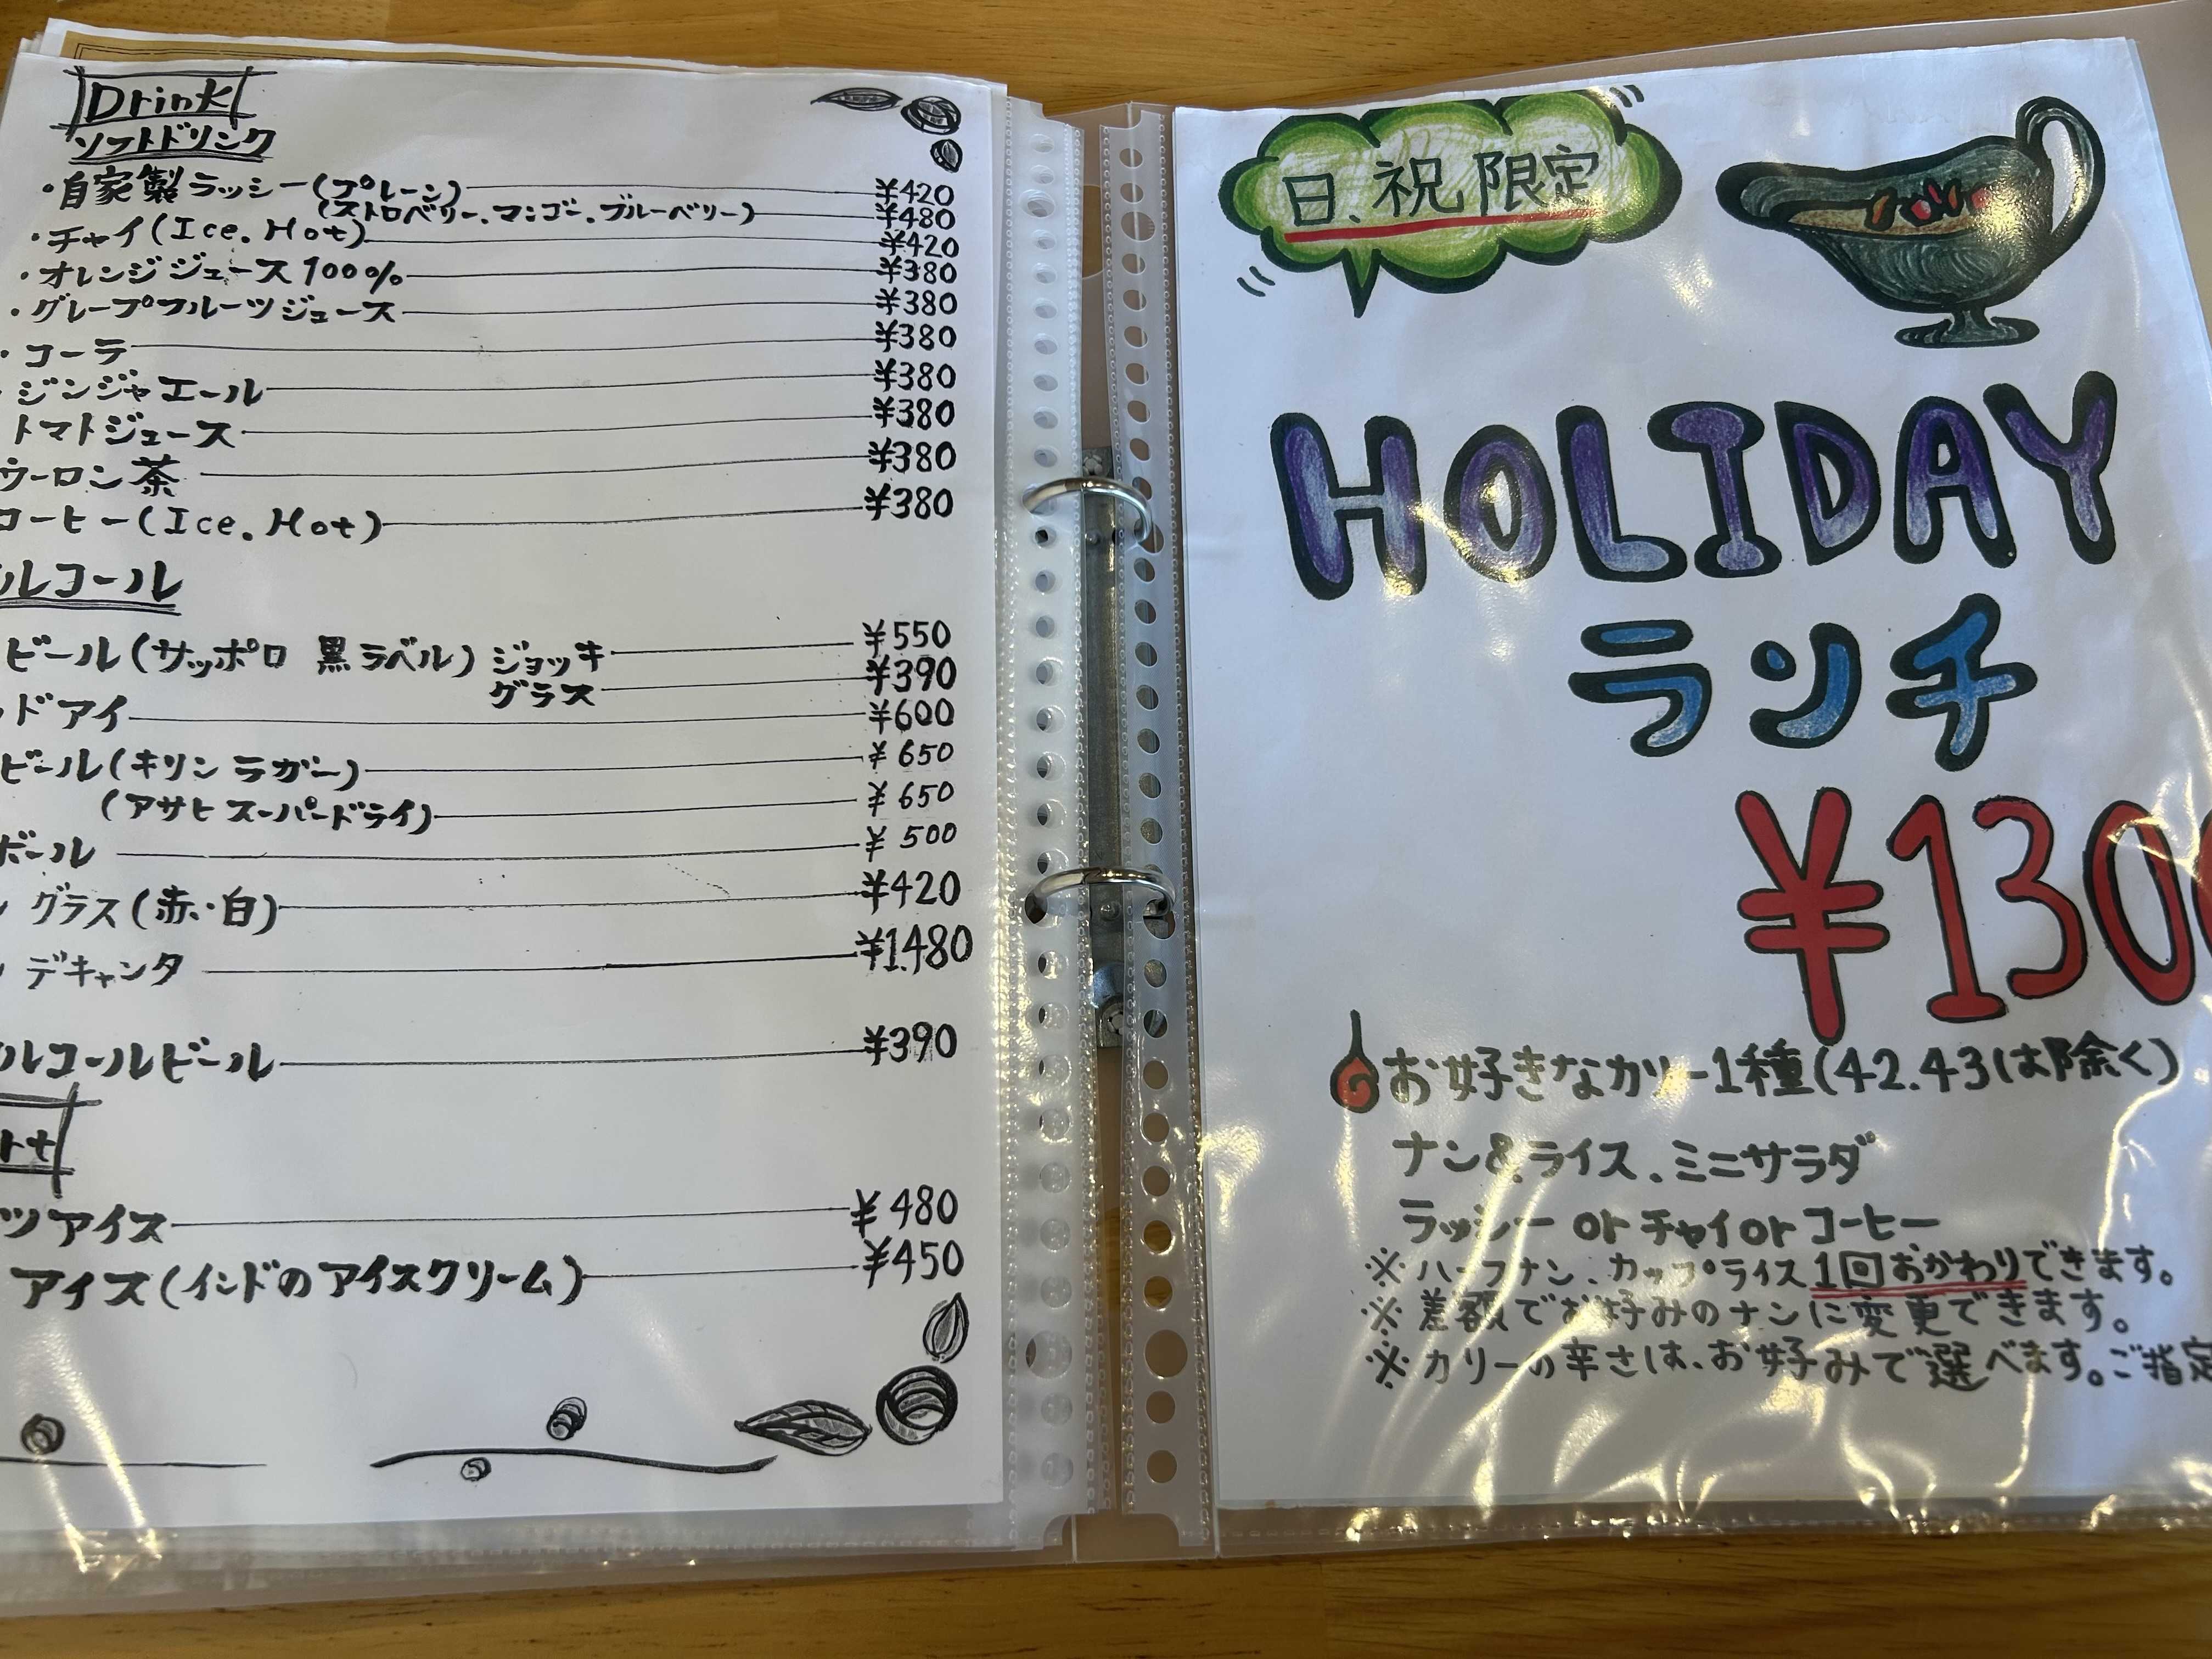 Drink
ソフトドリンク
・自家製ラッシー(プレーン) ¥420
(ストロベリー、マンゴー、ブルーベリー) ¥480
・チャイ(Ice. Hot) ¥420
・オレンジジュース100% ¥380
・グレープフルーツジュース ¥380
・コーラ ¥380
・ジンジャエール ¥380
トマトジュース ¥380
ウーロン茶 ¥380
コーヒー(Ice. Hot) ¥380
ルコール
ビール(サッポロ 黒ラベル) ジョッキ ¥550
グラス ¥390
ドアイ ¥600
ビール(キリン ラガー) ¥650
(アサヒ スーパードライ) ¥650
ボール ¥500
グラス(赤・白) ¥420
デキャンタ ¥1.480
ルコールビール ¥390
rt
ツアイス ¥480
アイス(インドのアイスクリーム) ¥450
日、祝限定
HOLIDAY
ランチ
¥130
お好きなカリー1種(42.43は除く)
ナン&ライス、ミニサラダ
ラッシー or チャイ or コーヒー
※ハーフナン、カップライス1回おかわりできます。
※差額でお好みのナンに変更できます。
※カリーの辛さは、お好みで選べます。ご指定